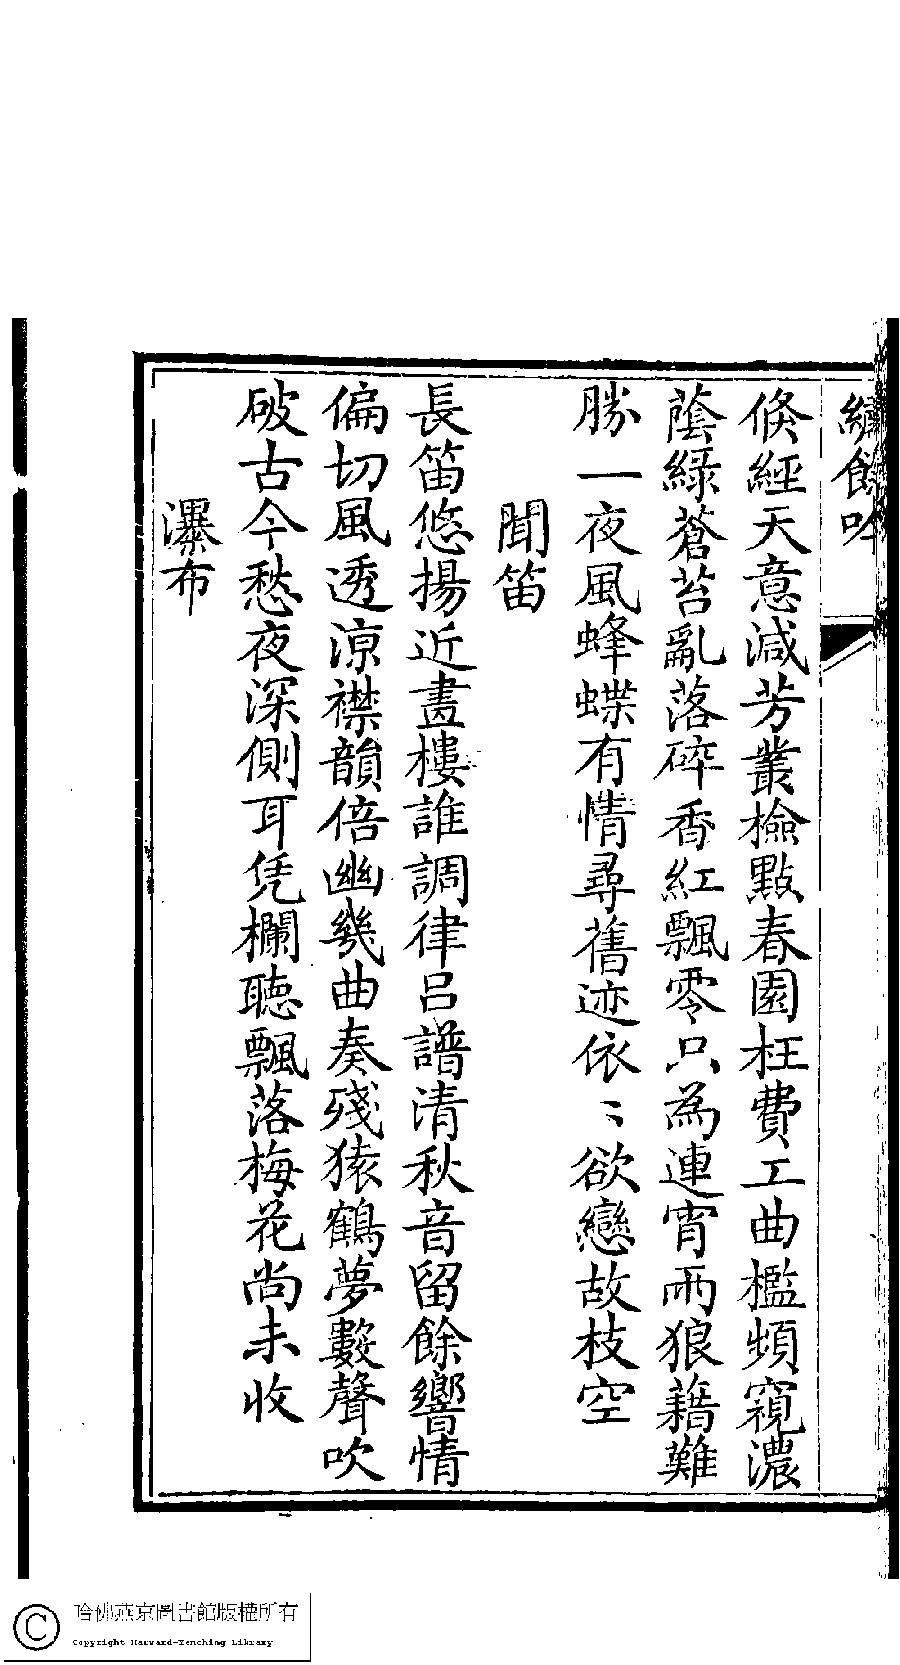 繡餘吟
倐經天意減芳叢檢點春園枉費工曲檻頻窺濃
蔭綠蒼苔亂落碎香紅飄零只為連宵雨狼藉難
勝一夜風蜂蝶有情尋舊迹依〻欲戀故枝空
聞笛
長笛悠揚近畫樓誰調律呂譜清秋音留餘響情
偏切風透涼襟韻倍幽幾曲奏殘猿鶴夢數聲吹
破古今愁夜深側耳凭欄聽飄落梅花尚未收
瀑布
哈佛燕京圖書館版權所有
Copyright Harvard-Yenching Library